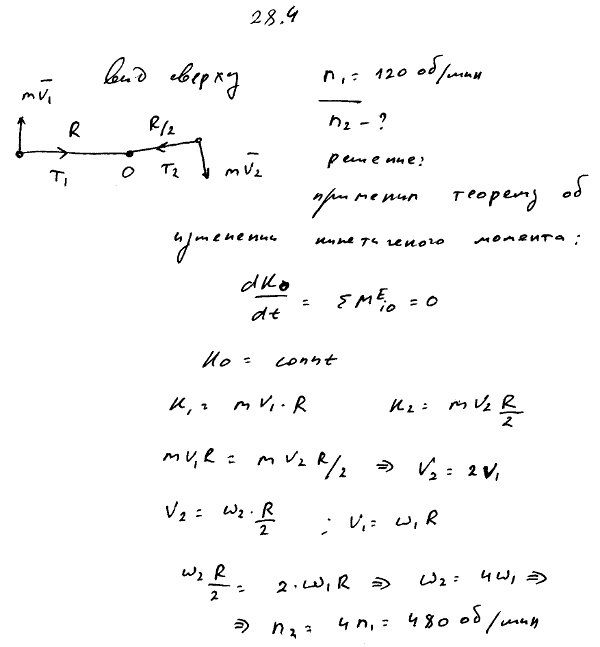 28.4
вид сверху
n₁ = 120 об/мин
n₂ - ?
mV̅₁
R
R/2
T₁
O
T₂
mV̅₂
решение:
применим теорему об
изменении кинетического момента:
dK₀/dt = ΣMᴱᵢ₀ = 0
K₀ = const
K₁ = mV₁·R K₂ = mV₂ R/2
mV₁R = mV₂ R/2 ⇒ V₂ = 2V₁
V₂ = ω₂·R/2 ; V₁ = ω₁R
ω₂ R/2 = 2·ω₁R ⇒ ω₂ = 4ω₁ ⇒
⇒ n₂ = 4n₁ = 480 об/мин